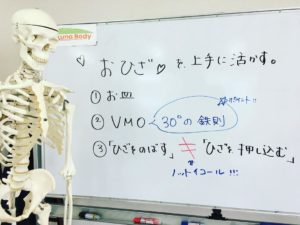 Luna Body
おひざ♡を上手に活かす。
① お皿
② VMO 30°の鉄則
③「ひざをのばす」≠「ひざを押し込む」
ノットイコール!!!